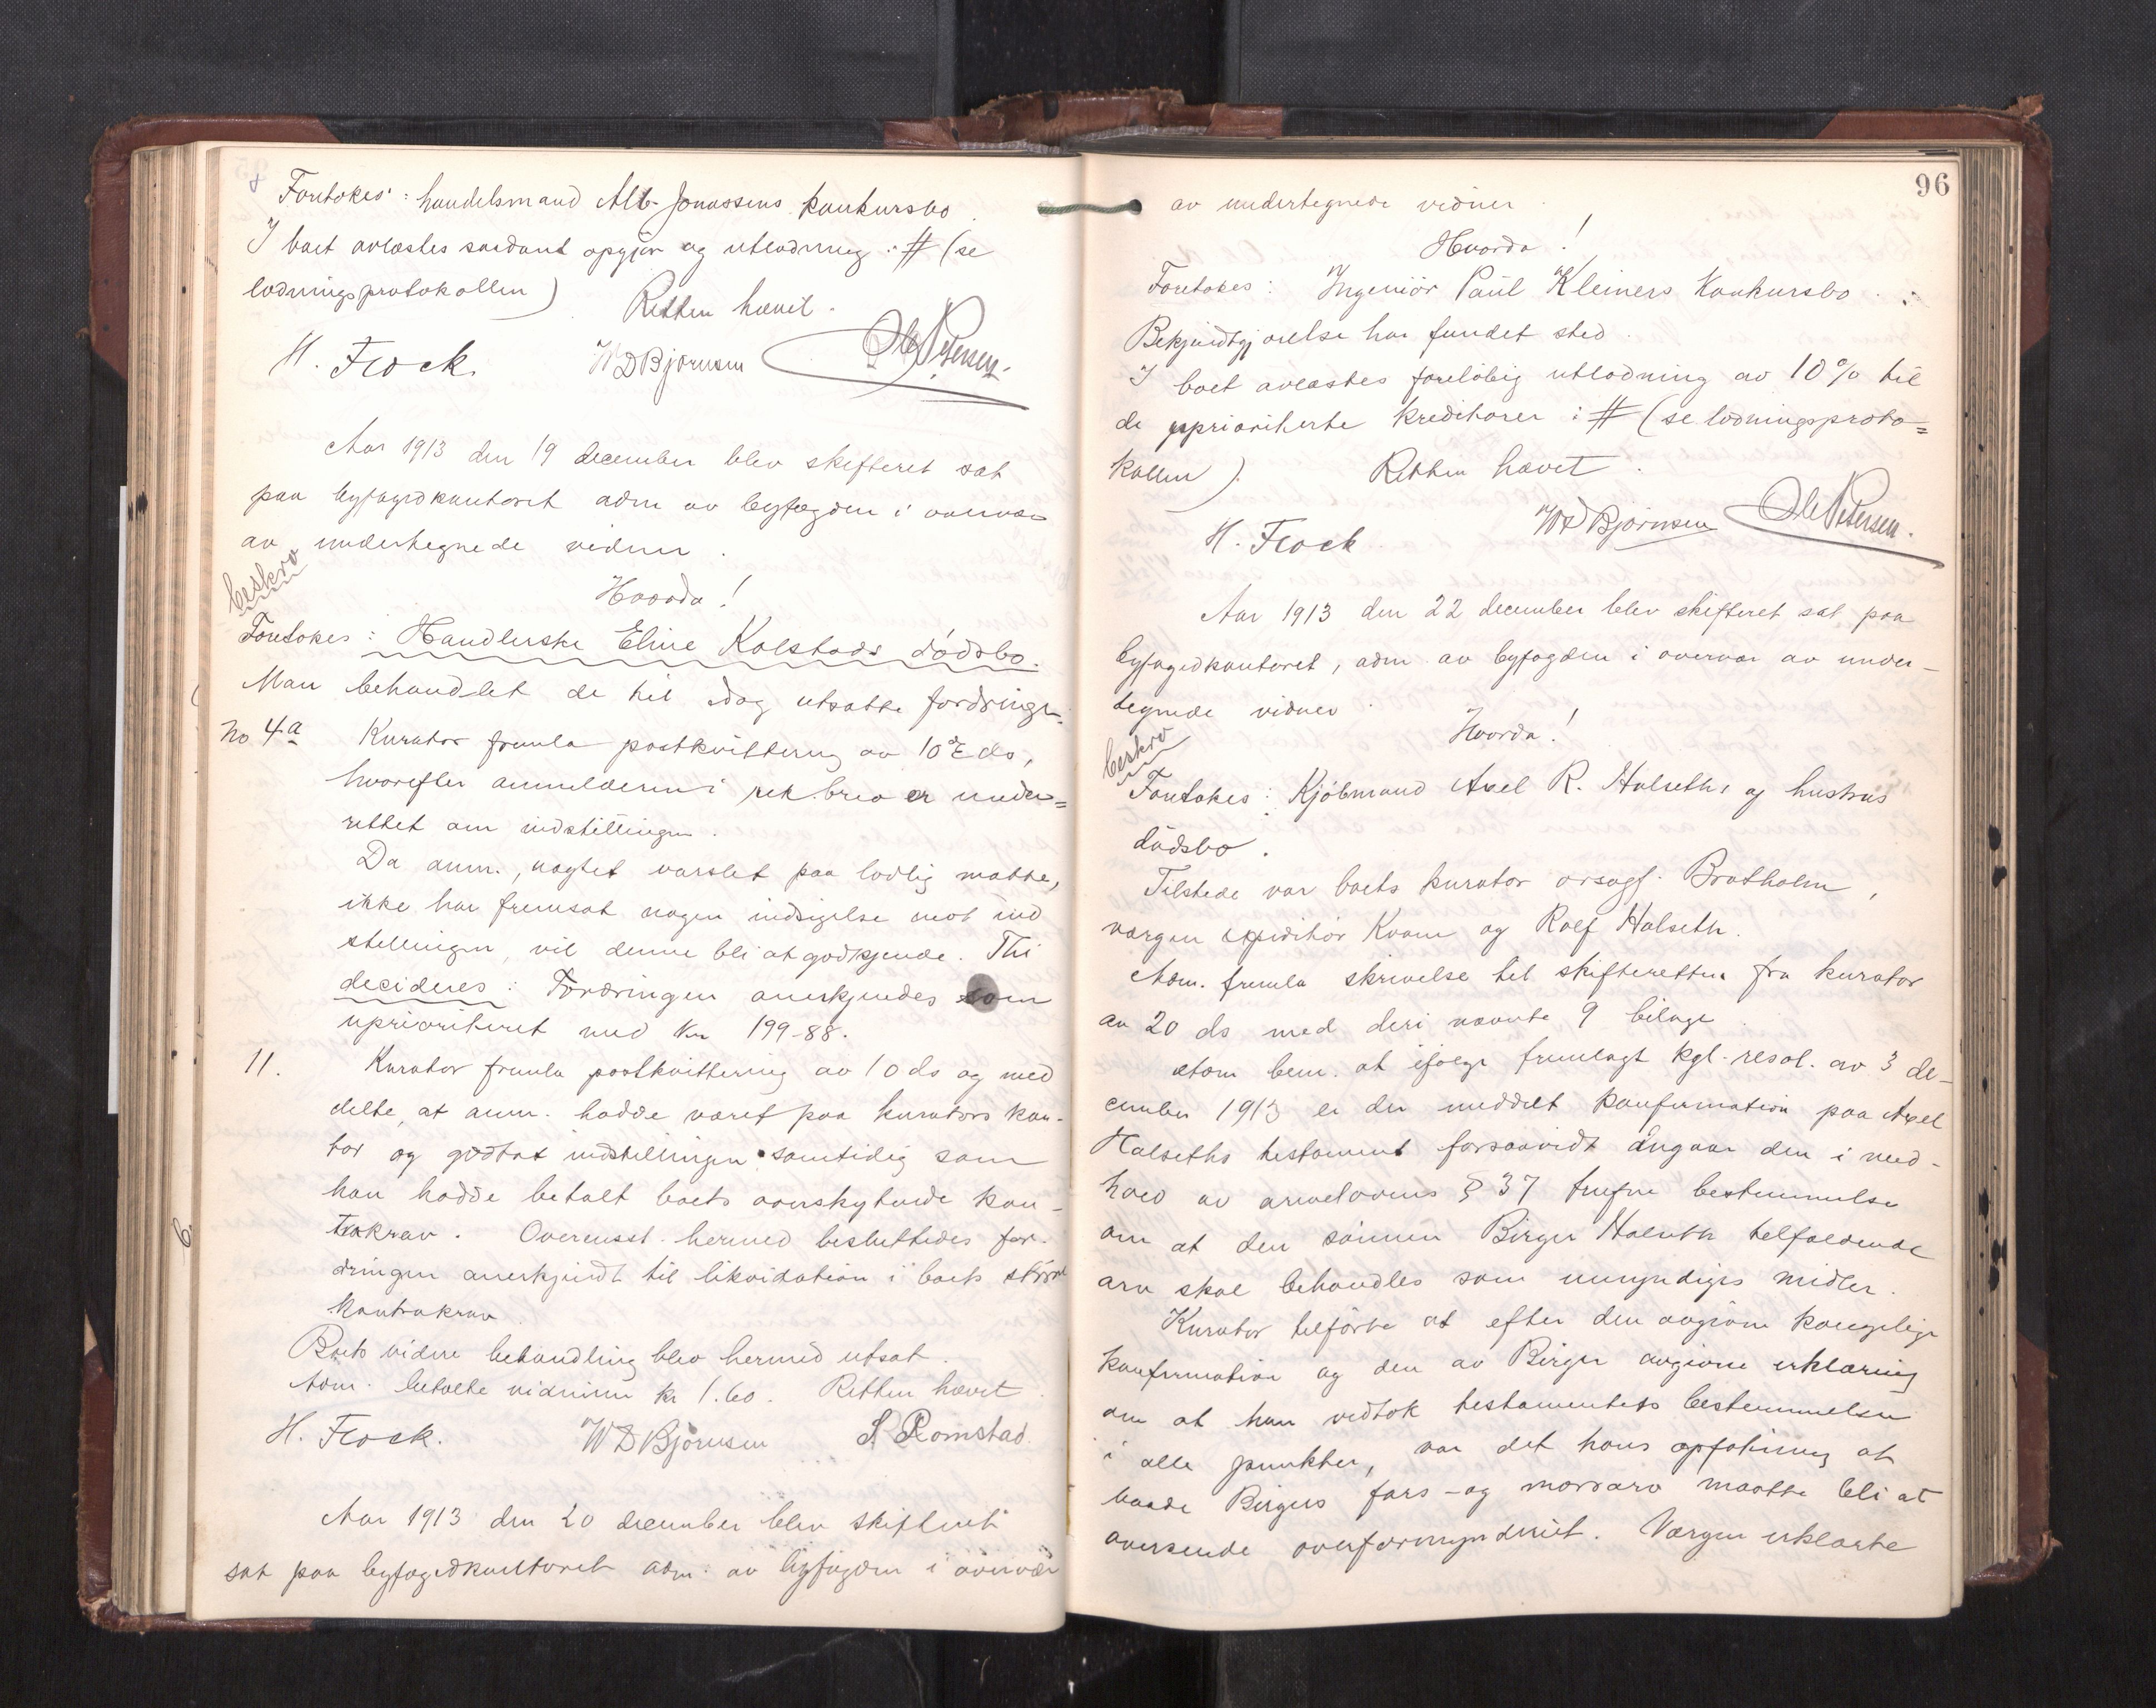 Foretokes: handelsmand Alb. Jonassens konkursbo.
I boet avlæstes saadant opgjør og utlodning: # (se
lodningsprotokollen)
Retten hævet.
H. Flock. WD Bjørnsen Ole Petersen.
Aar 1913 den 19 december blev skifteret sat
paa byfogedkontoret adm av byfogden i overvær
av undertegnede vidner.
beskrv
Hvorda!
Foretokes: Handlerske Eline Kolstads dödsbo.
Man behandlet de til idag utsatte fordringer.
No 4a Kurator fremla postkvittering av 10 ds,
hvorefter anmelderen i rek. brev er under=
rettet om indstillingen.
Da anm., uagtet varslet paa lovlig maate,
ikke har fremsat nogen indsigelse mot ind
stillingen, vil denne bli at godkjende. Thi
decideres: Fordringen anerkjendes som
uprioriteret med Kr 199-88.
11. Kurator fremla postkvittering av 10 ds og med
delte, at anm. hadde været paa kurators kon-
tor og godtat indstillingen samtidig som
han hadde betalt boets overskytende kon-
trakrav. Overensst. hermed besluttedes for-
dringen anerkjendt til likvidation i boets större
kontrakrav.
Boets videre behandling blev hermed utsat.
Adm. betalte vidnerne kr 1.60. Retten hævet.
H. Flock. WD Bjørnsen S. Romstad.
Aar 1913 den 20 december blev skifteret
sat paa byfogedkontoret adm. av byfogden i overvær
96
av undertegnede vidner.
Hvorda!
Foretokes: Ingeniör Paul Kleiners Konkursbo.:
Bekjendtgjørelse har fundet sted.
I boet avlæstes foreløbig utlodning av 10% til
de uprioriterte kreditorer: # (se lodningsproto=
kollen).
Retten hævet.
H. Flock WD Bjørnsen Ole Petersen.
Aar 1913 den 22 december blev skifteret sat paa
byfogedkontoret, adm av byfogden i overvær av under-
tegnede vidner.
Hvorda!
beskrv
Foretokes: Kjöbmand Axel R. Halseths og hustrus
dödsbo.
Tilstede var boets kurator orsagf. Bratholm,
værgen expeditör Kvam og Rolf Halseth.
Adm. fremla skrivelse til skifteretten fra kurator
av 20 ds med deri nævnte 9 bilage.
Adm bem. at ifølge fremlagt kgl. resol. av 3 de-
cember 1913 er der meddelt konfirmation paa Axel
Halseths testament forsaavidt angaar den i med-
hold av arvelovens § 37 trufne bestemmelse
om at den sönnen Birger Halseth tilfaldende
arv skal behandles som umyndiges midler.
Kurator tilförte at efter den avgivne kongelige
konfirmation og den av Birger avgivne erklæring
om at han vedtok testamentets bestemmelser
i alle punkter, var det hans opfatning at
baade Birgers fars- og morsarv maatte bli at
oversende overformynderiet. Værgen erklærte